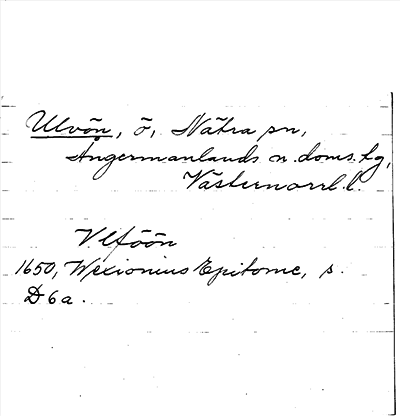 Ulvön, ö, Nätra sn,
Ångermanlands n. doms.tg,
Västernorrl. l.
Vlföön
1650, Wexionius Epitome, s.
D6a.